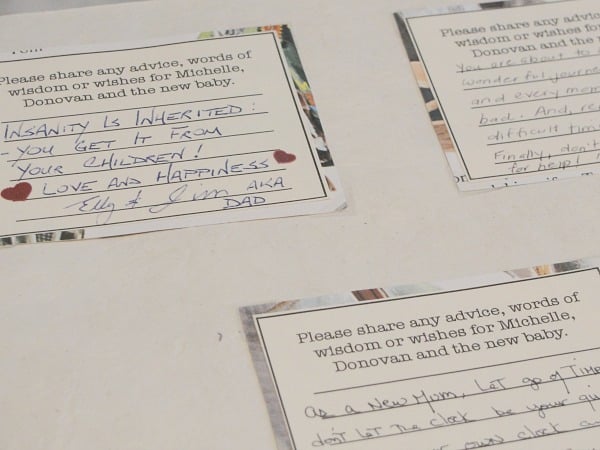 Please share any advice, words of
wisdom or wishes for Michelle,
Donovan and the new baby.
INSANITY IS INHERITED:
YOU GET IT FROM
YOUR CHILDREN!
LOVE AND HAPPINESS
Elly & Jim AKA
DAD
Please share any advice
wisdom or wishes fo
Donovan and the n
You are about to
wonderful journe
and every mom
bad. And, re
difficult tim
Finally, don't
for help!
Please share any advice, words of
wisdom or wishes for Michelle,
Donovan and the new baby.
as a New Mum, Let go of Time
don't let the clock be your gu
own clock